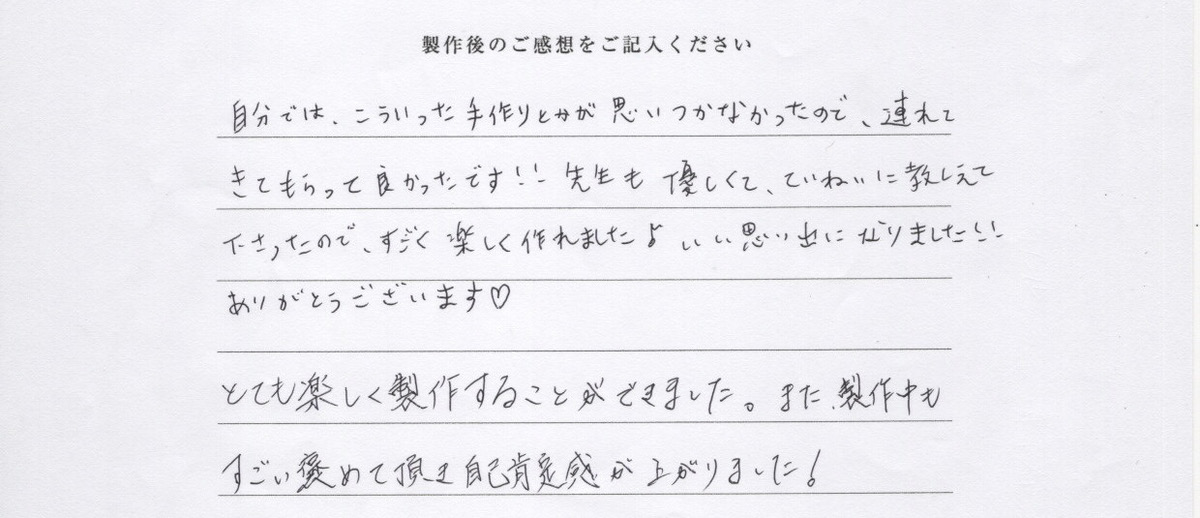 製作後のご感想をご記入ください
自分では、こういった手作りとかが思いつかなかったので、連れて
きてもらって良かったです!! 先生も優しくて、ていねいに教しえて
下さったので、すごく楽しく作れました♪ いい思い出になりました!!
ありがとうございます♡
とても楽しく製作することができました。また、製作中も
すごい褒めて頂き自己肯定感が上がりました!